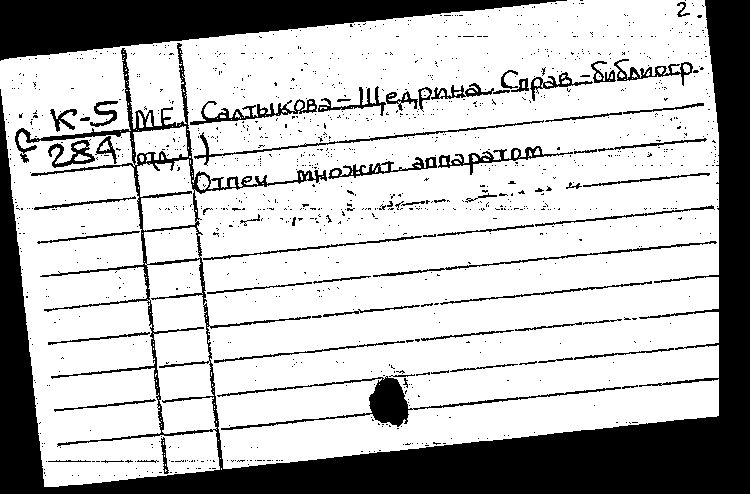 2.
К-5 М.Е. Салтыкова-Щедрина. Справ.-библиогр.
284 отд.)
Отпеч множит. аппаратом.